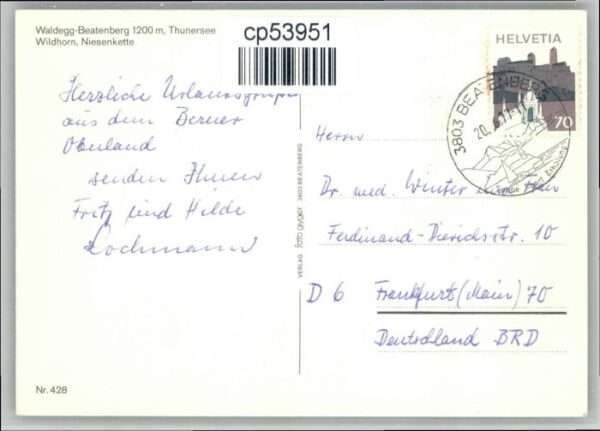 Waldegg-Beatenberg 1200 m, Thunersee
Wildhorn, Niesenkette
cp53951
HELVETIA
70
3803 BEATENBERG
20.
Herzliche Urlaubsgrüße
aus dem Berner
Oberland
senden Ihnen
Fritz und Hilde
Lochmann
VERLAG foto gyger 3803 BEATENBERG
Herrn
Dr. med. Winter
Ferdinand-Dierichsstr. 10
D 6 Frankfurt (Main) 70
Deutschland BRD
Nr. 428